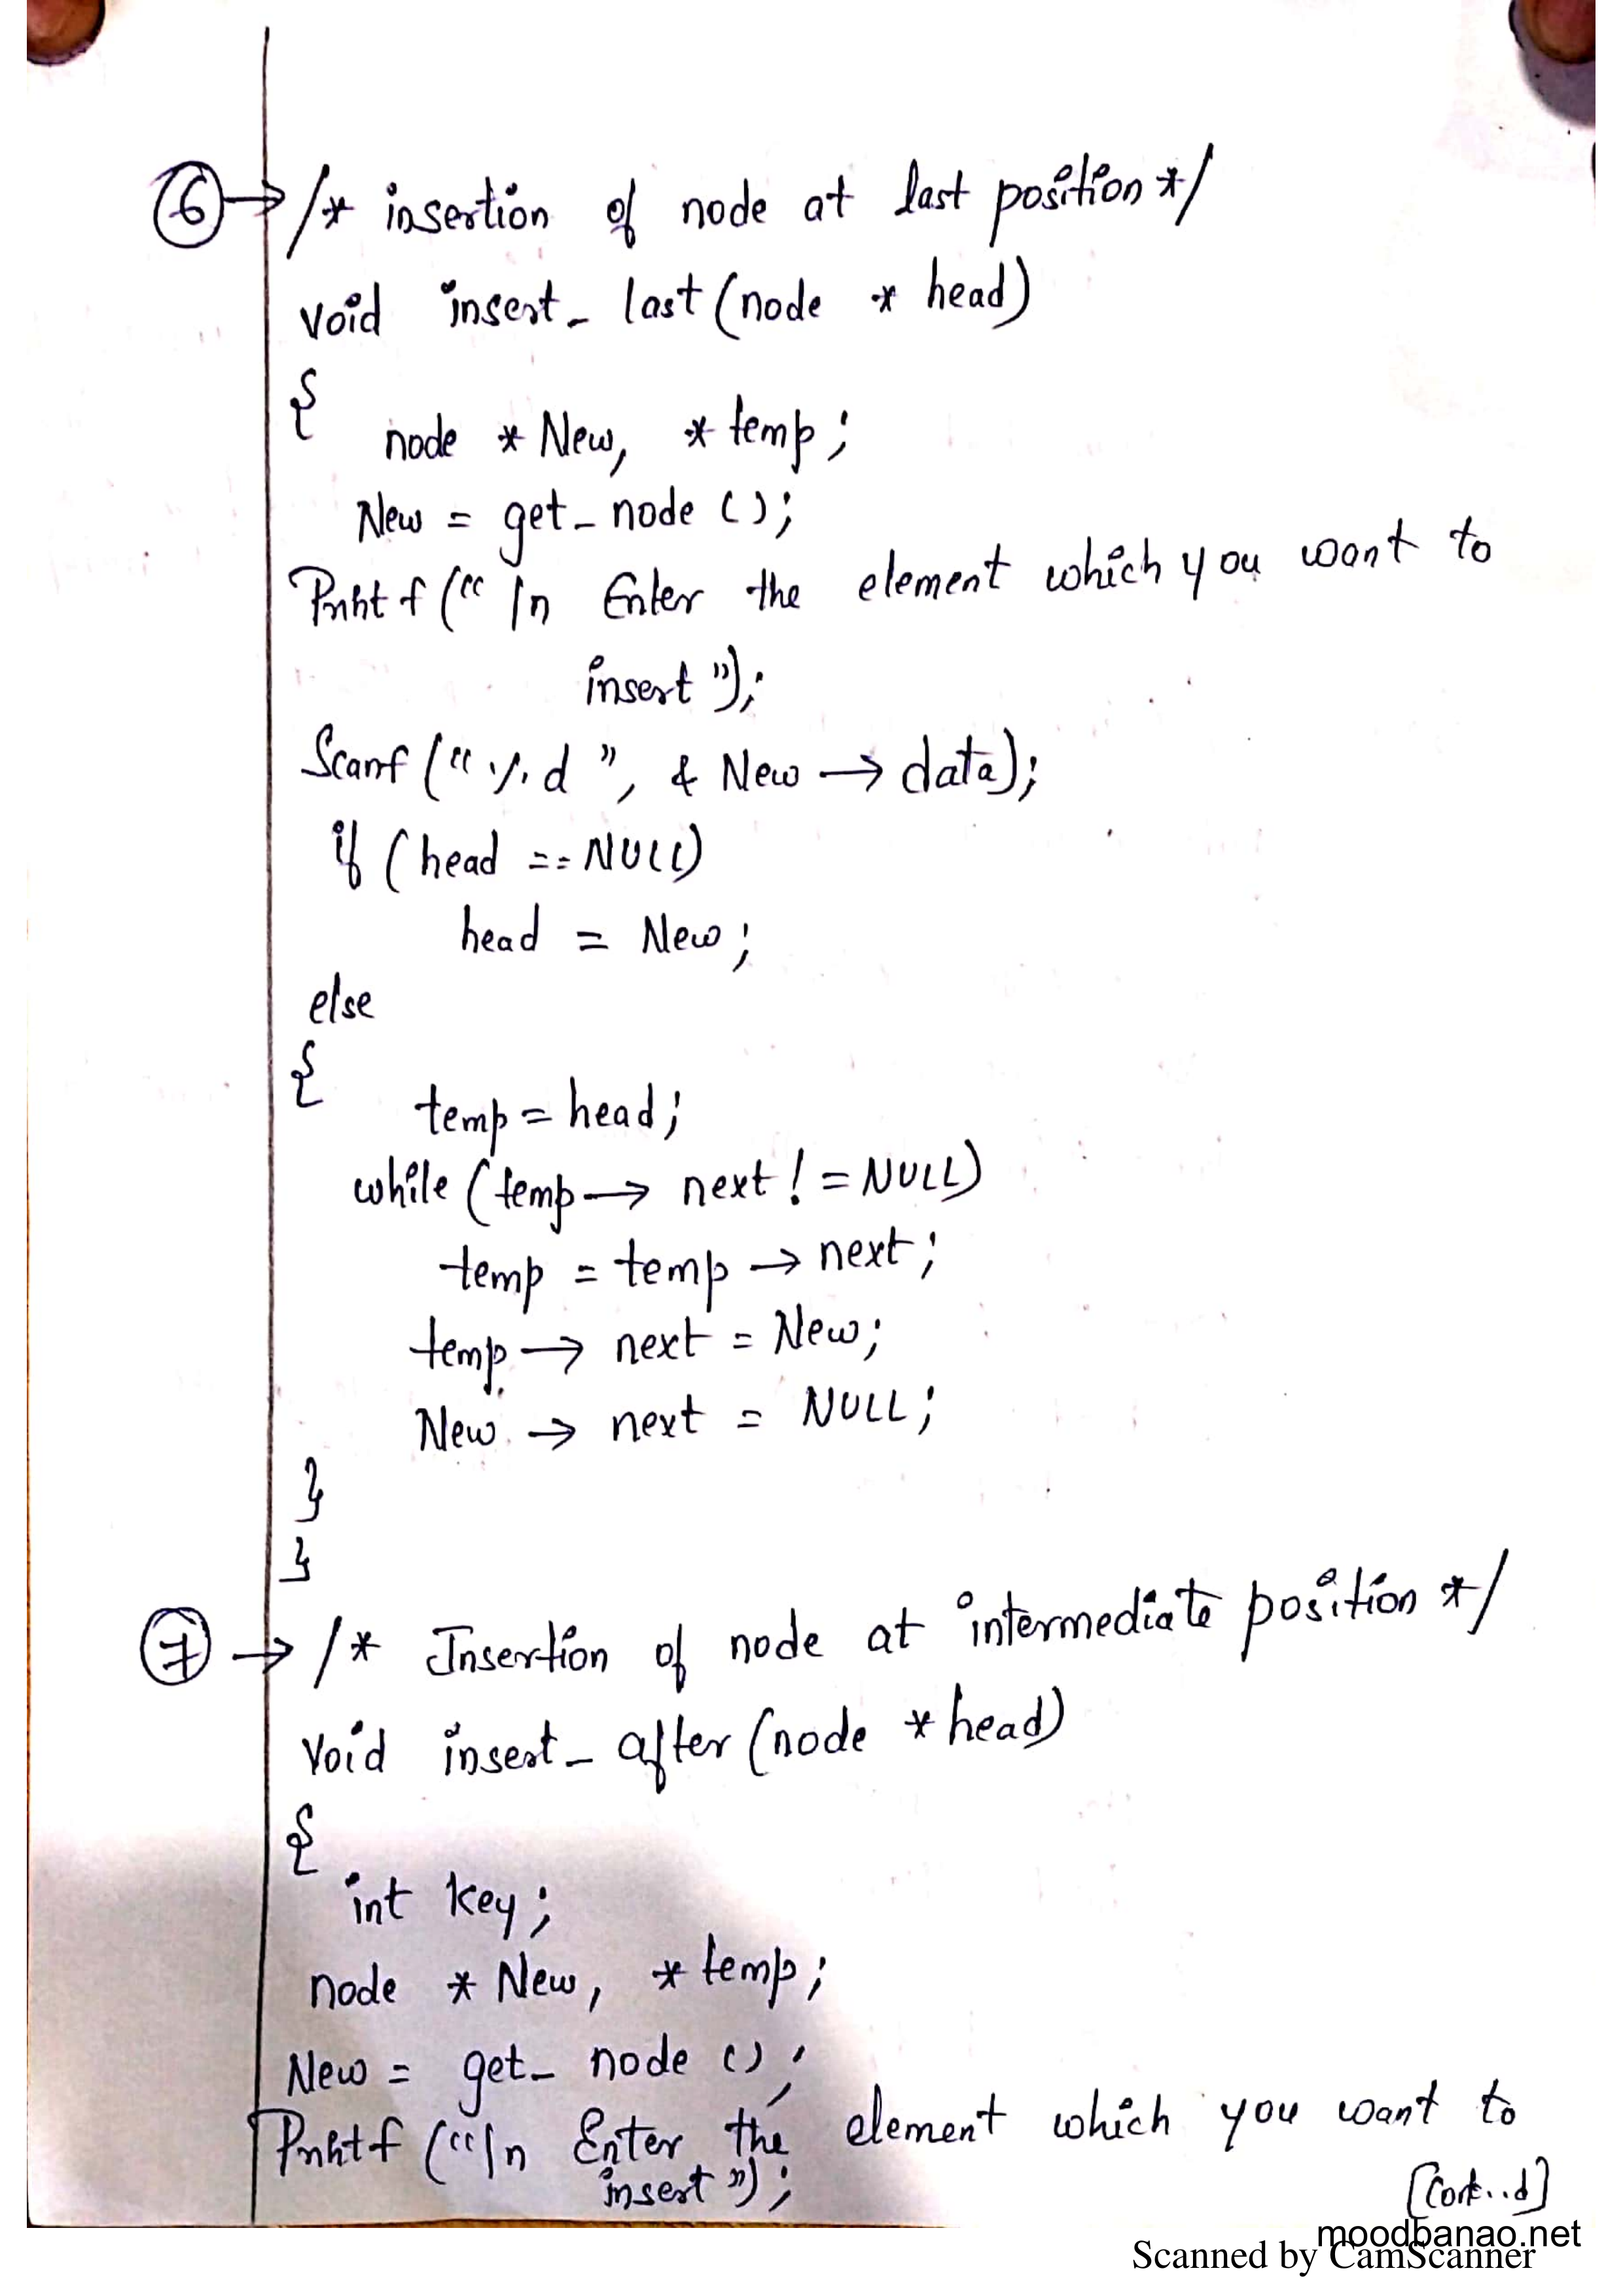 6 → /* insertion of node at last position */
void insert_ last (node * head)
{
node * New, *temp;
New = get_node ();
Printf (“ \n Enter the element which you want to
insert ”);
Scanf (“ %d ”, & New → data);
if (head == NULL)
head = New;
else
{
temp = head;
while (temp → next ! = NULL)
temp = temp → next;
temp → next = New;
New → next = NULL;
}
}
7 → /* Insertion of node at intermediate position */
void insert_ after (node * head)
{
int key;
node * New, * temp;
New = get_ node ();
Printf (“\n Enter the element which you want to
insert ”);
[Cont..d]
moodbanao.net
Scanned by CamScanner